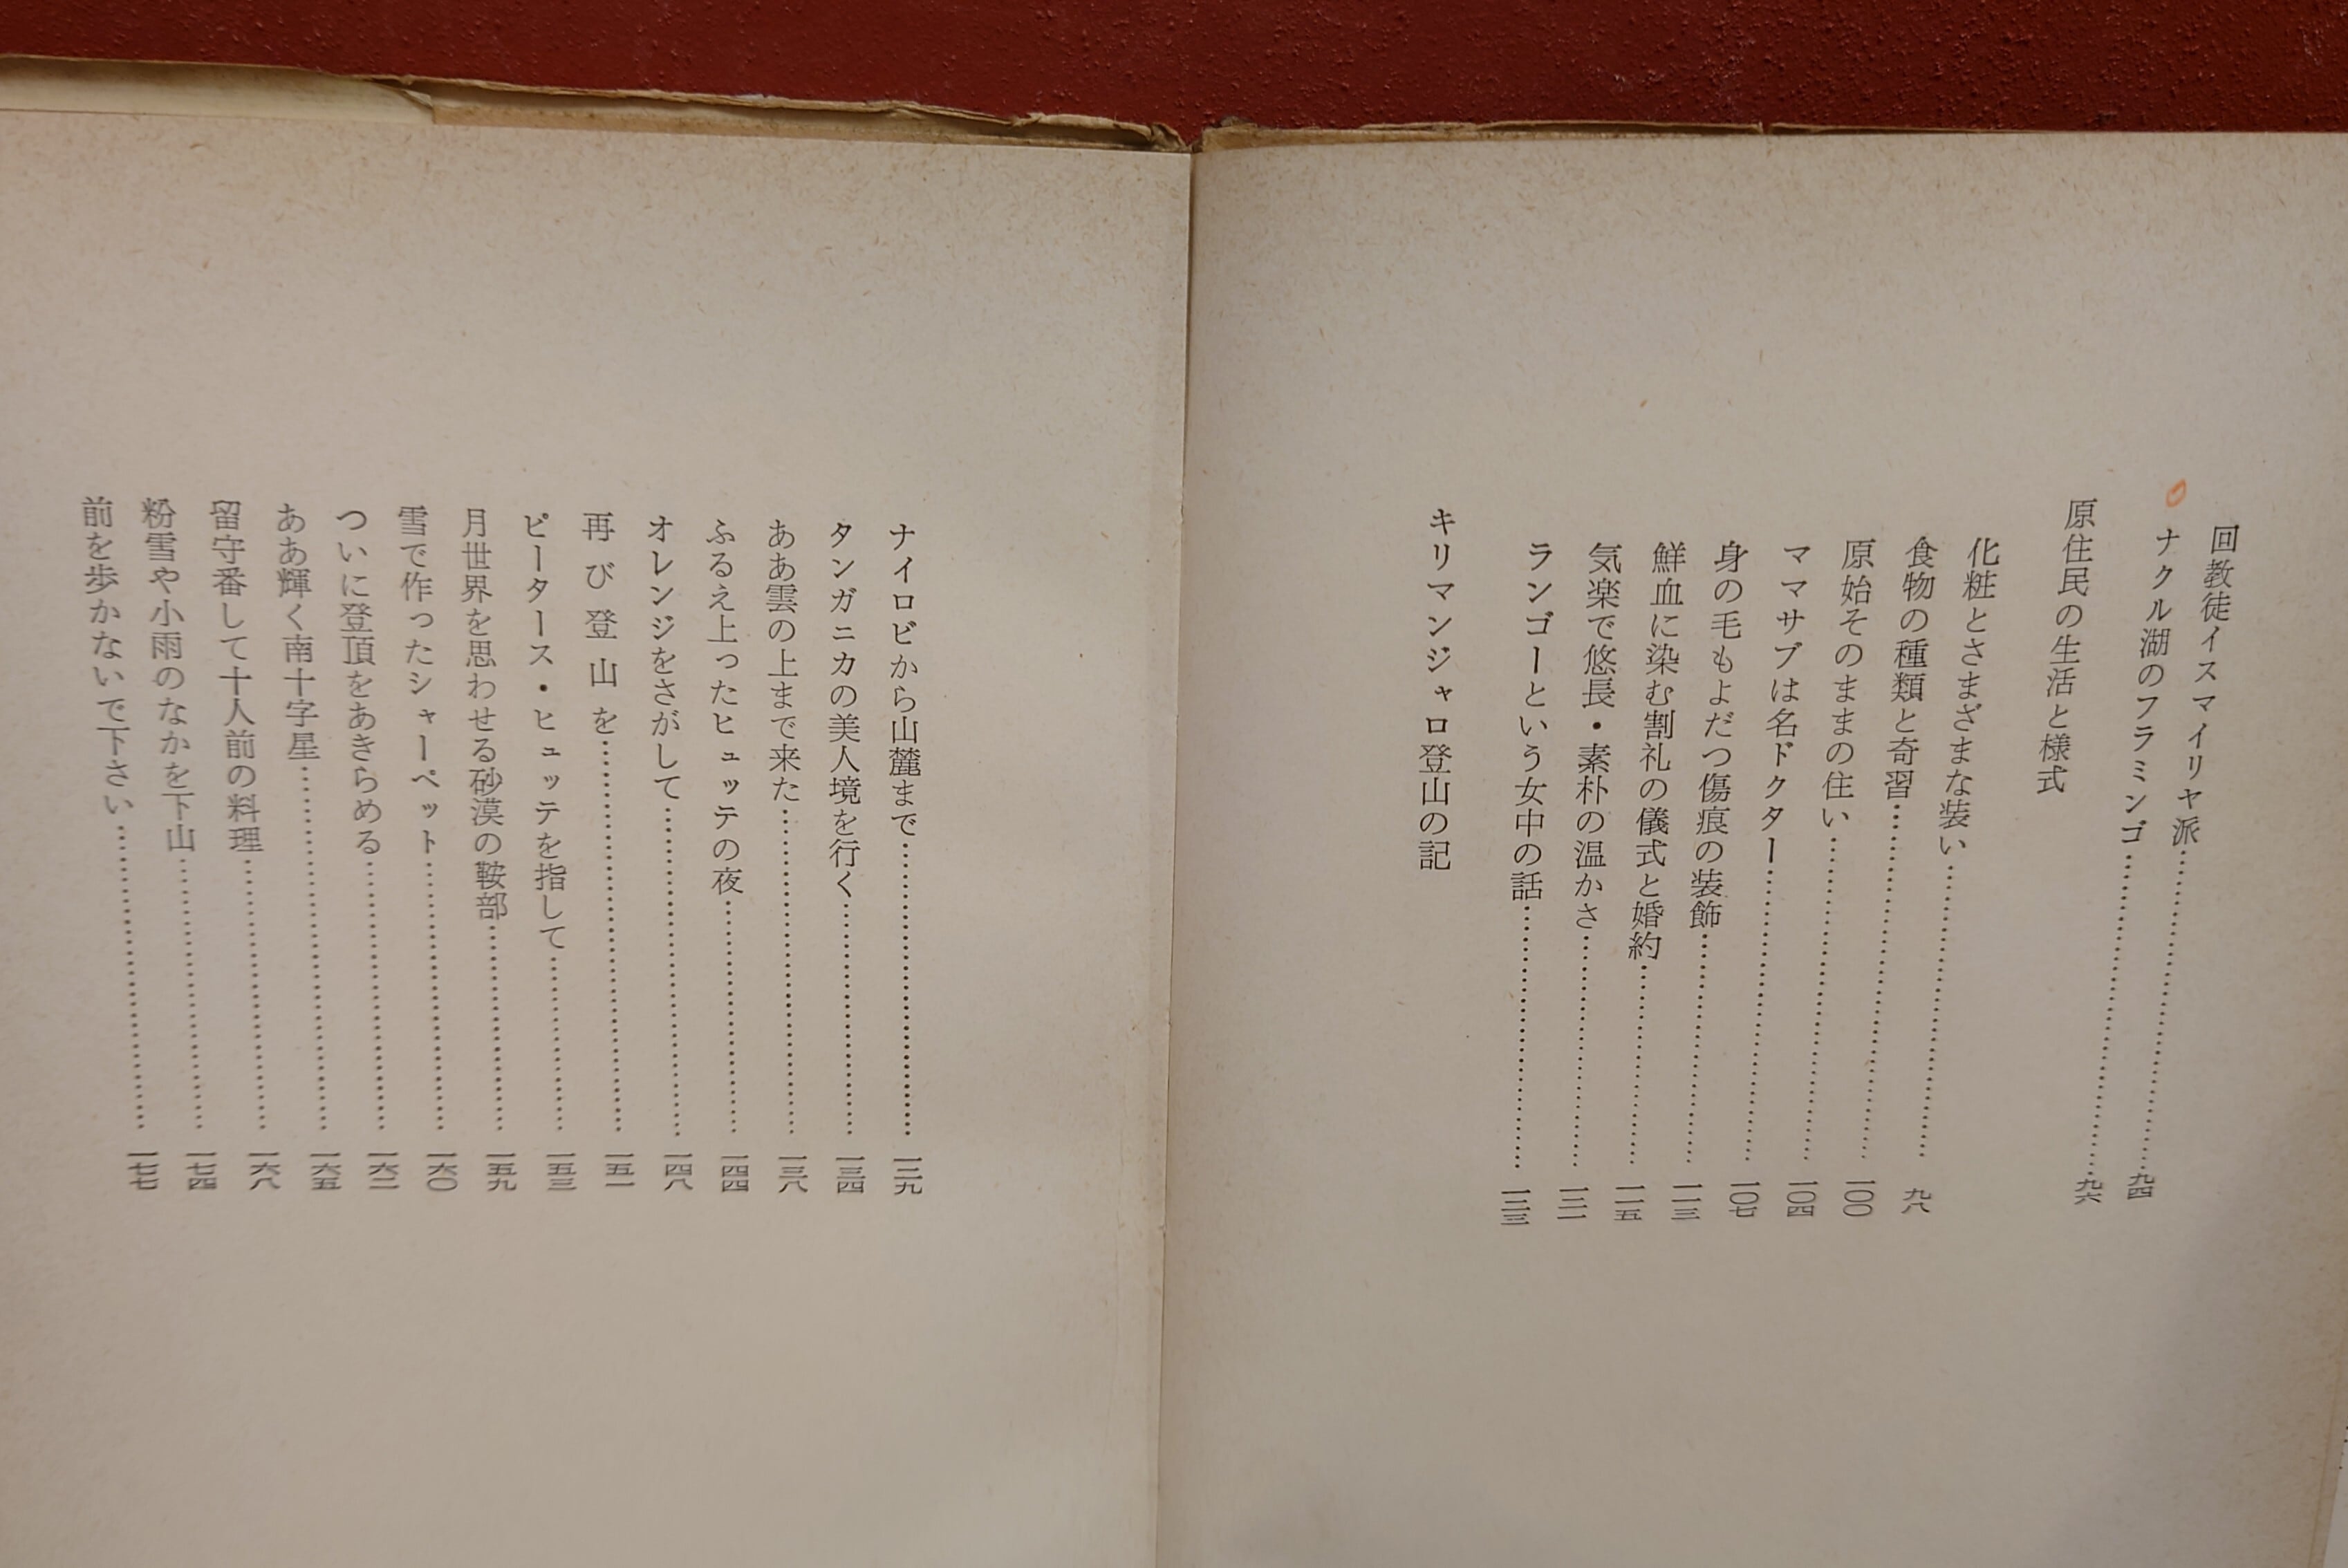 回教徒イスマイリヤ派……………九四
ナクル湖のフラミンゴ……………九六
原住民の生活と様式
化粧とさまざまな装い……………九八
食物の種類と奇習……………一〇〇
原始そのままの住い……………一〇四
ママサブは名ドクター……………一〇七
身の毛もよだつ傷痕の装飾……………一一三
鮮血に染む割礼の儀式と婚約……………一一五
気楽で悠長・素朴の温かさ……………一二一
ランゴーという女中の話……………一二三
キリマンジャロ登山の記
ナイロビから山麓まで……………一二九
タンガニカの美人境を行く……………一三四
ああ雲の上まで来た……………一三八
ふるえ上ったヒュッテの夜……………一四四
オレンジをさがして……………一四八
再び登山を……………一五一
ピータース・ヒュッテを指して……………一五三
月世界を思わせる砂漠の鞍部……………一五九
雪で作ったシャーペット……………一六〇
ついに登頂をあきらめる……………一六二
ああ輝く南十字星……………一六五
留守番して十人前の料理……………一六八
粉雪や小雨のなかを下山……………一七四
前を歩かないで下さい……………一七七